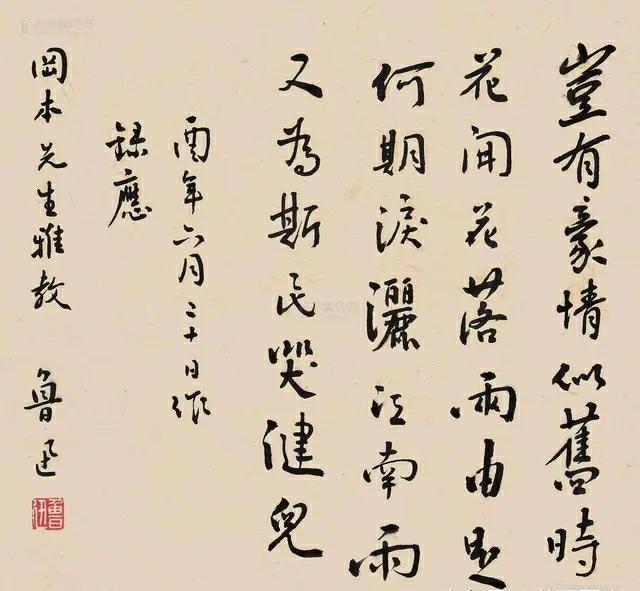 豈有豪情似舊時
花開花落兩由之
何期淚灑江南雨
又為斯民哭健兒
酉年六月二十日作
錄應
岡本先生雅教 魯迅